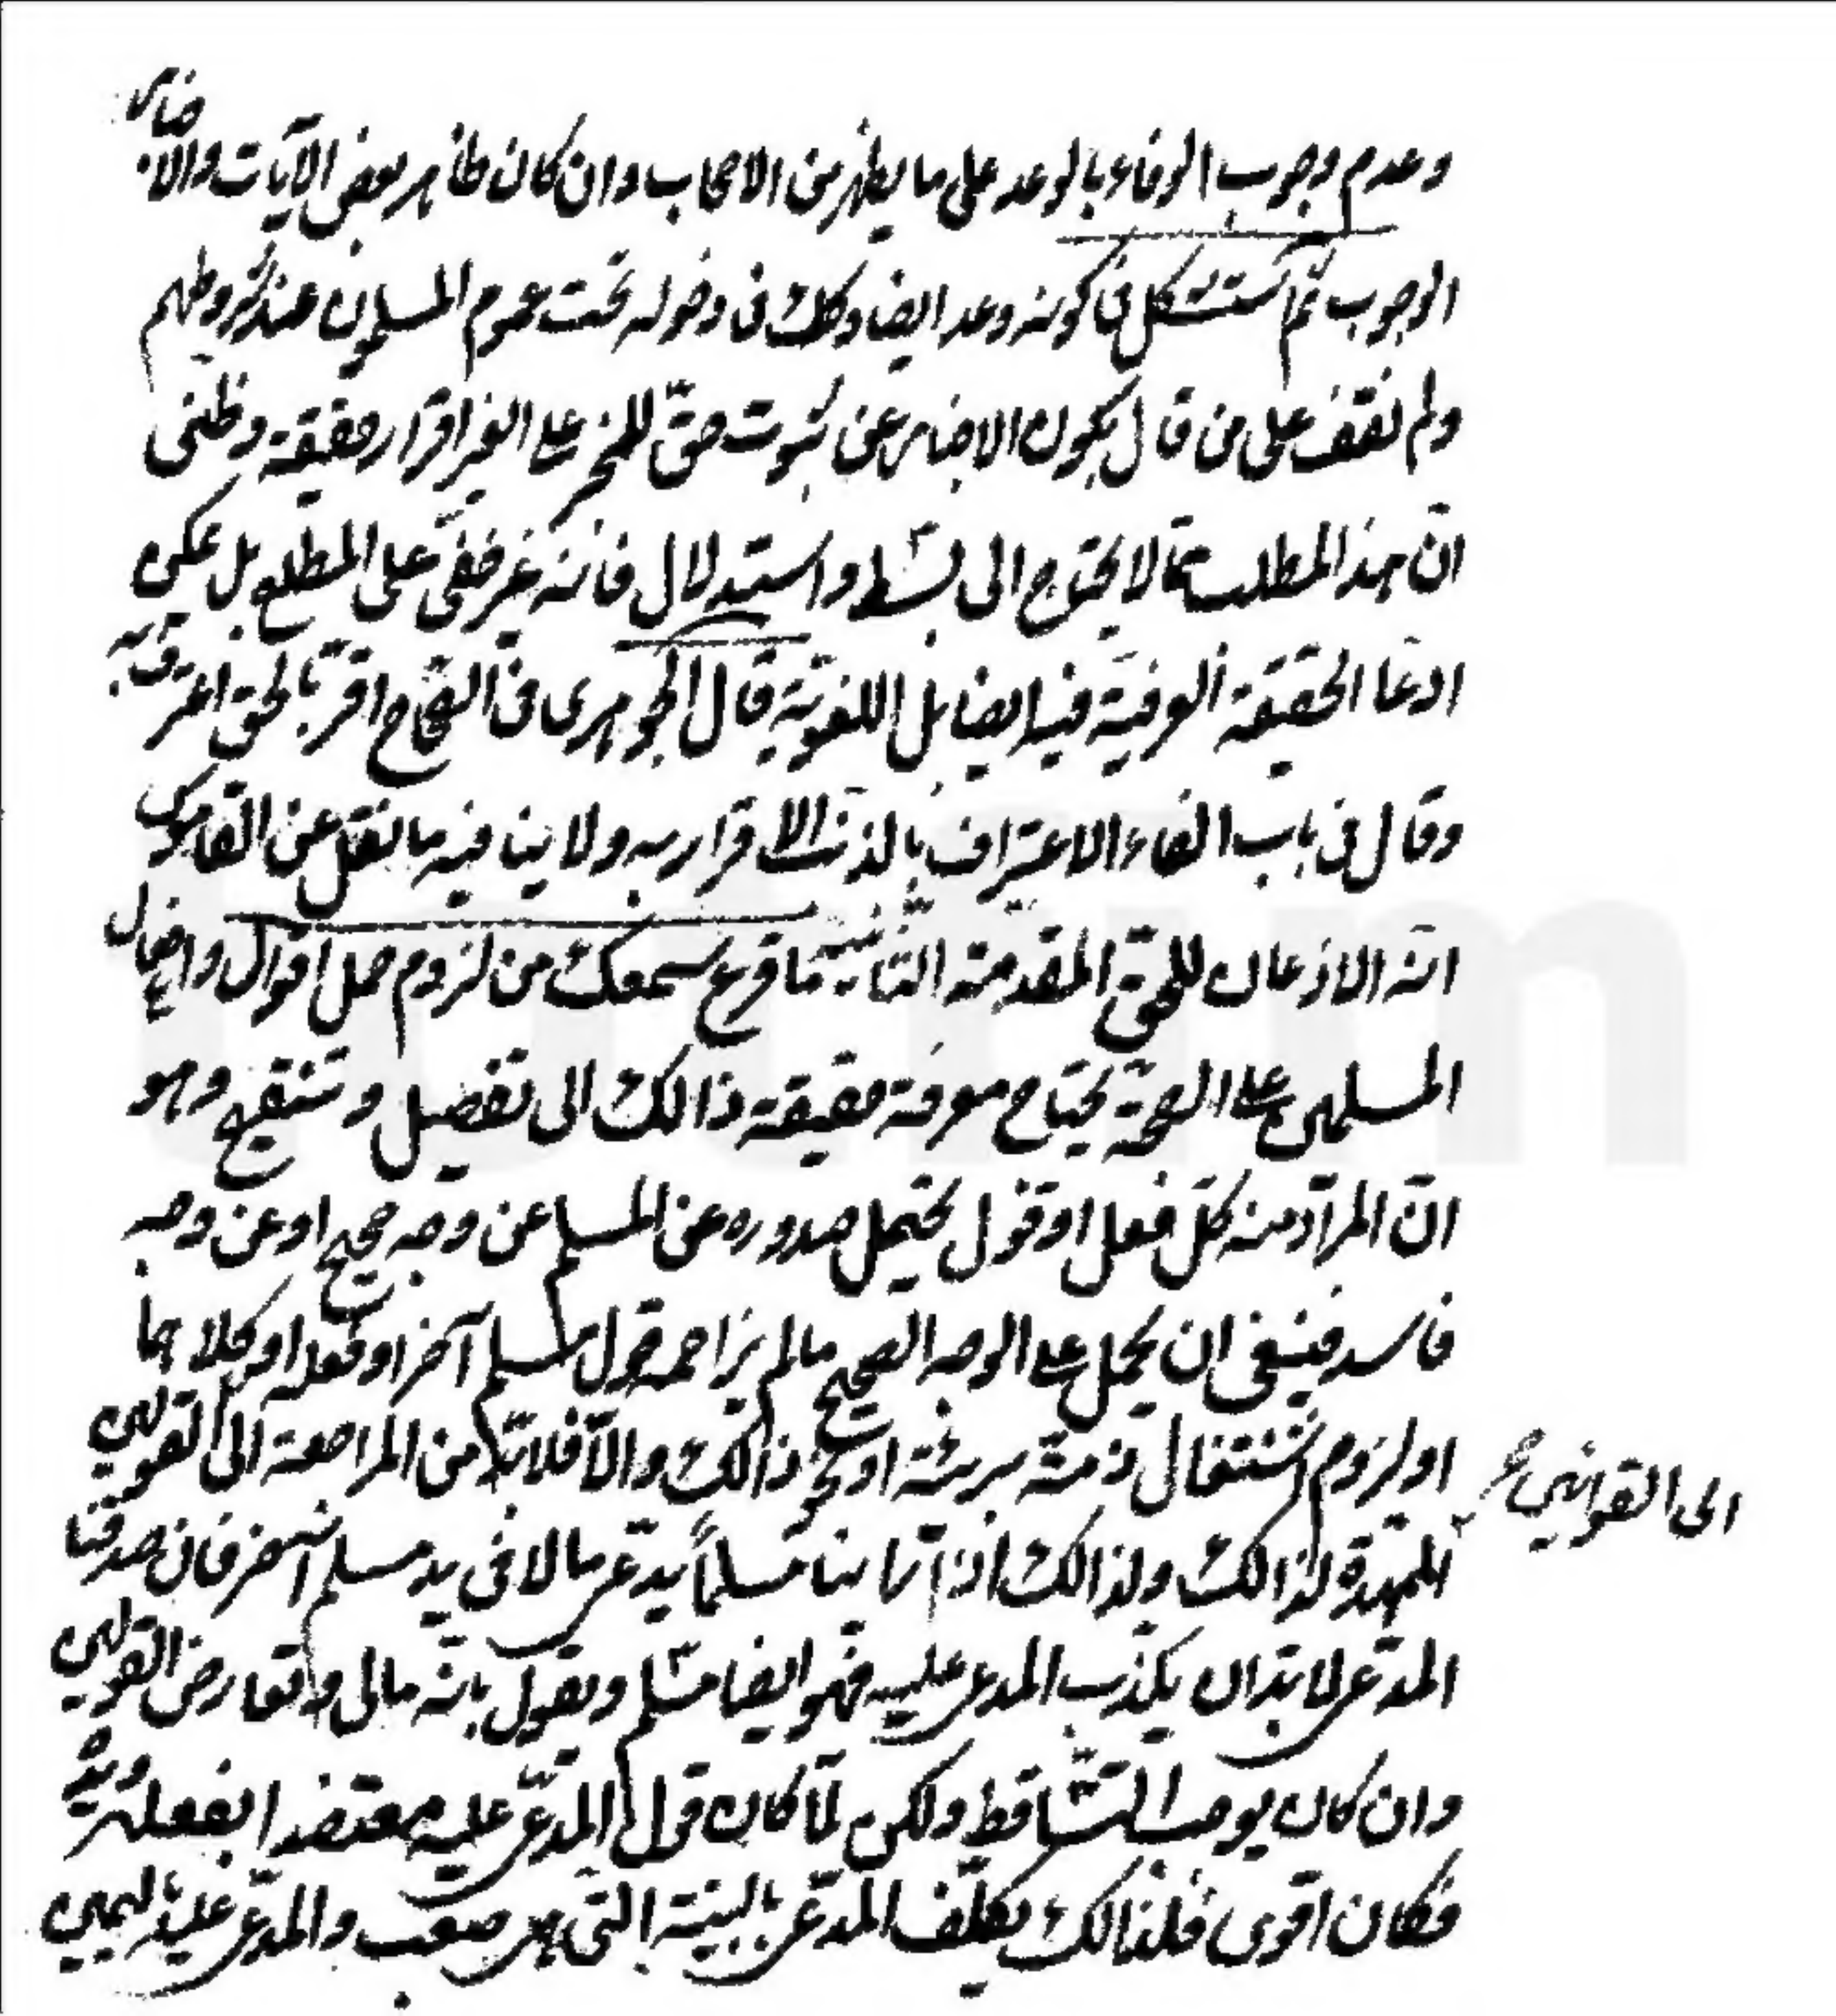 وعدم وجوب الوفاء بالوعد على ما يظهر من الاصحاب وان كان ظاهر بعض الآيات والاخبار
الوجوب ثم استشكل في كونه وعدا ايضا وكك في دخوله تحت عموم المسلمون عند شروطهم
ولم نقف على من قال بكون الاخبار عن ثبوت حق للمخبر على الغير اقرار حقيقة وظني
ان هذا المطلب مما لا يحتاج الى بسط واستدلال فانه غير خفي على المطلع بل يمكن
ادعا الحقيقة العرفية فيه ايضا بل اللغوية قال الجوهرى فى الصحاح اقر بالحق اعترف به
وقال في باب الفاء الاعتراف بالذنب الاقرار به ولا ينافيه ما نقل عن القاموس
انه الاذعان للحق المقدمة الثانية ما قرع سمعك من لزوم حمل اقوال وافعال
المسلمين على الصحة يحتاج معرفة حقيقة ذالك الى تفصيل وتنقيح وهو
ان المراد منه كل فعل او قول يحتمل صدوره عن المسلم عن وجه صحيح او عن وجه
فاسد فينبغى ان يحمل على الوجه الصحيح مالم يزاحمه قول مسلم آخر او فعله او كلاهما
او لزوم اشتغال ذمة بريئة او نحو ذالك والا فلا بد من المراجعة الى القولين
الى القوانين
الممهدة لذالك ولذالك اذا راينا مسلماً يدعى مالا فى يد مسلم اخر فان صدقنا
المدعى لابد ان يكذب المدعى عليه فهو ايضا مسلم ويقول بانه مالى وتعارض القولين
وان كان يوجب التساقط ولكن لما كان قول المدعى عليه معتضدا بفعله ويده
فكان اقوى فلذالك يكلف المدعى بالبينة التى هى صعب والمدعى عليه باليمين